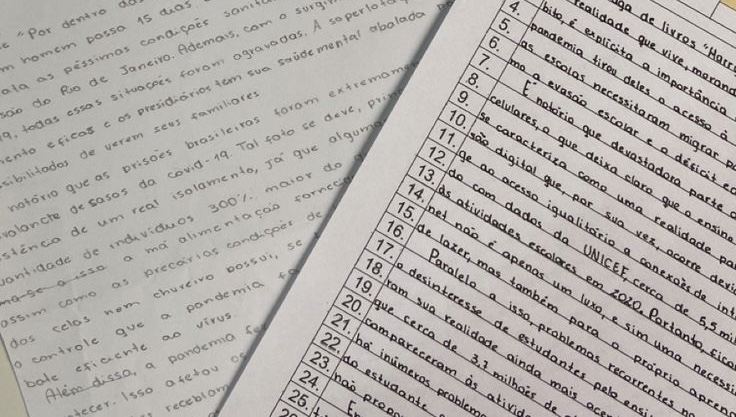 "Por dentro das
m homem passa 15 dias
ata as péssimas condições sanitá
são do Rio de Janeiro. Ademais, com o surgim
19, todas essas situações foram agravadas. A superlota
mento eficaz e os presidiários têm sua saúde mental abalada
sibilitados de verem seus familiares
notório que as prisões brasileiras foram extremame
valanche de casos da covid-19. Tal fato se deve, prin
stência de um real isolamento, já que algum
uantidade de indivíduos 300% maior do
ma-se a isso a má alimentação forneci
assim como as precárias condições de
das celas nem chuveiro possui, se
o controle que a pandemia
bate eficiente ao vírus.
Além disso, a pandemia fe
tecer. Isso afetou os
receblam
ga de livros "Harry
4. realidade que vive, morand
5. bito, é explícita a importância
6. pandemia tirou deles o acesso à
7. as escolas necessitaram migrar p
8. ma a evasão escolar e o déficit ed
9. É notório que devastadora parte
10. celulares, o que deixa claro que o ensino
11. se caracteriza como uma realidade pa
12. são digital que, por sua vez, ocorre devi
13. ge ao acesso igualitário a conexões de int
14. do com dados da UNICEF, cerca de 5,5 mi
15. as atividades escolares em 2020. Portanto, fica
16. net não é apenas um luxo, e sim uma necessi
17. de lazer, mas também para o próprio apren
18. Paralelo a isso, problemas recorrentes
19. o desinteresse de estudantes pelo ensi
20. nam sua realidade ainda mais
21. que cerca de 3,7 milhões de
22. compareceram às ativida
23. há inúmeros problem
24. do estudante
25. não propo